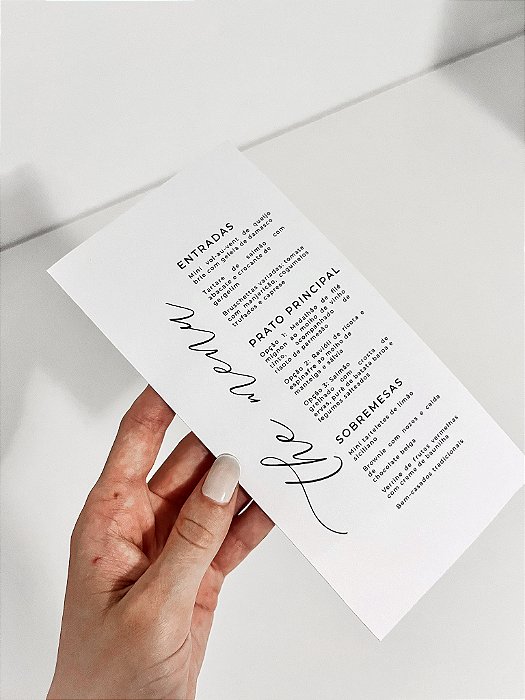 The menu
ENTRADAS
Mini vol-au-vent de queijo
brie com geleia de damasco
Tartare de salmão com
abacate e crocante de
gergelim
Bruschettas variadas: tomate
com manjericão, cogumelos
trufados e caprese
PRATO PRINCIPAL
Opção 1: Medalhão de filé
mignon ao molho de vinho
tinto, acompanhado de
risoto de parmesão
Opção 2: Ravióli de ricota e
espinafre ao molho de
manteiga e sálvia
Opção 3: Salmão
grelhado com crosta de
ervas, purê de batata baroa e
legumes salteados
SOBREMESAS
Mini tarteletes de limão
siciliano
Brownie com nozes e calda
de chocolate belga
Verrine de frutas vermelhas
com creme de baunilha
Bem-casados tradicionais